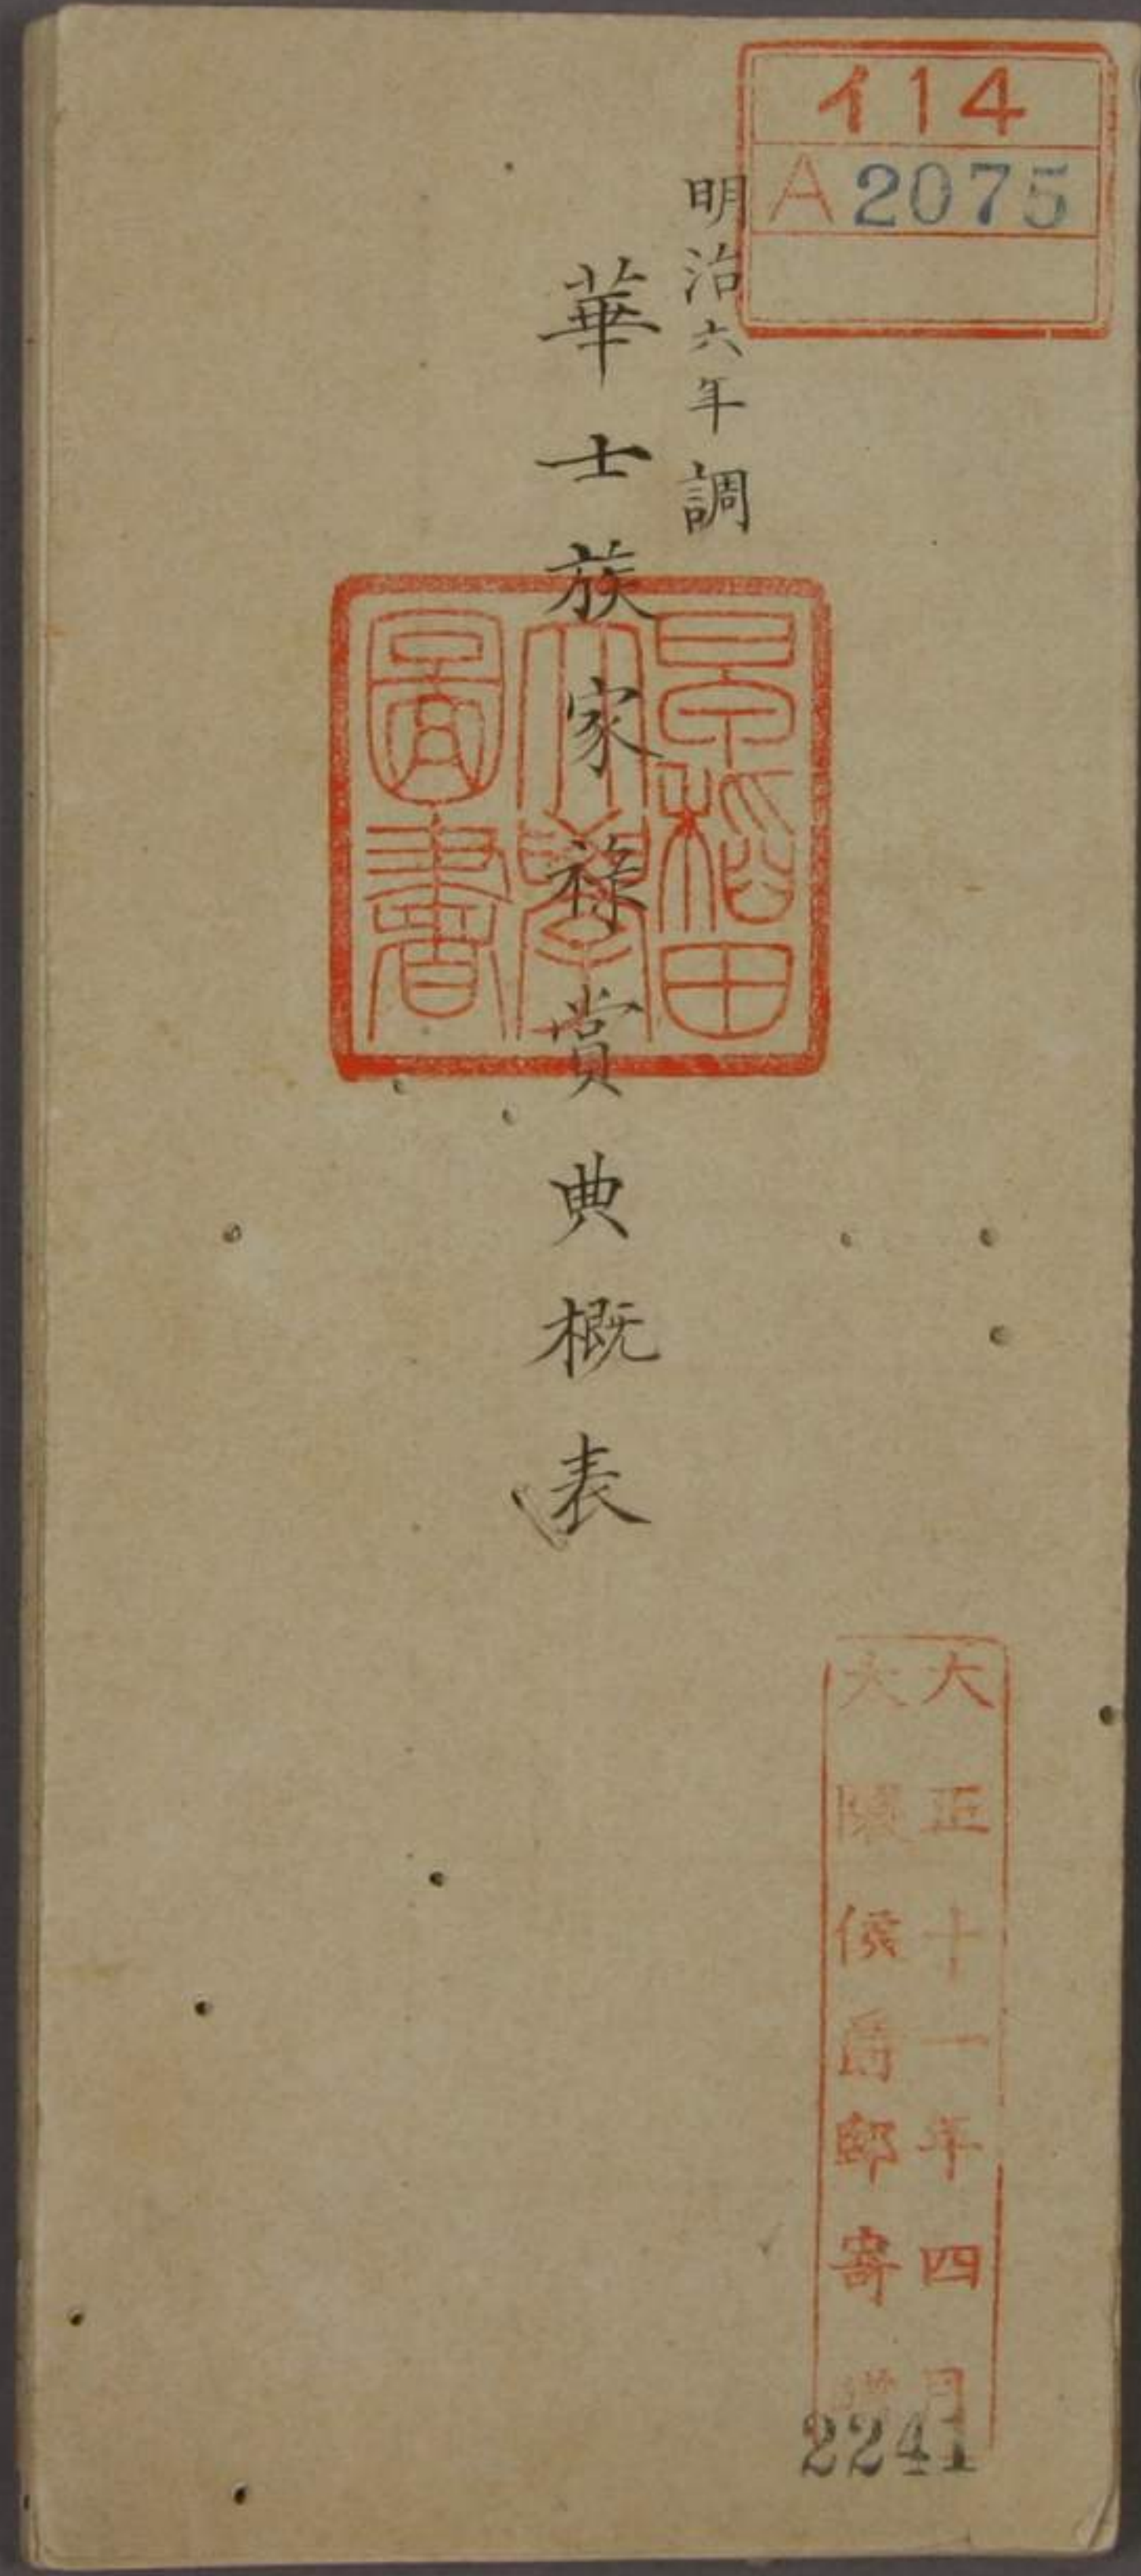 イ14
A2075
明治六年調
華士族家祿賞典概表
早稲田
大學
圖書
大正十一年四月
大隈侯爵邸寄贈
2241